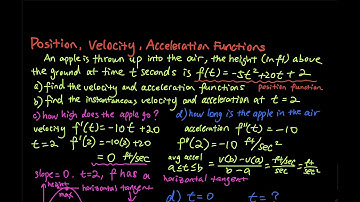 Position, Velocity, Acceleration Functions
An apple is thrown up into the air, the height (in ft) above
the ground at time t seconds is f(t) = -5t² + 20t + 2
a) find the velocity and acceleration functions position function
b) find the instantaneous velocity and acceleration at t = 2
c) how high does the apple go? d) how long is the apple in the air
velocity f'(t) = -10t + 20 acceleration f''(t) = -10
t = 2 f'(2) = -10(2) + 20 f''(2) = -10 ft/sec²
= 0 ft/sec avg accel a ≤ t ≤ b = v(b) - v(a) / b - a = ft/sec / sec = ft / sec²
slope = 0. t = 2, f has a horizontal tangent
height horizontal tangent
max d) t = 0 t = ?